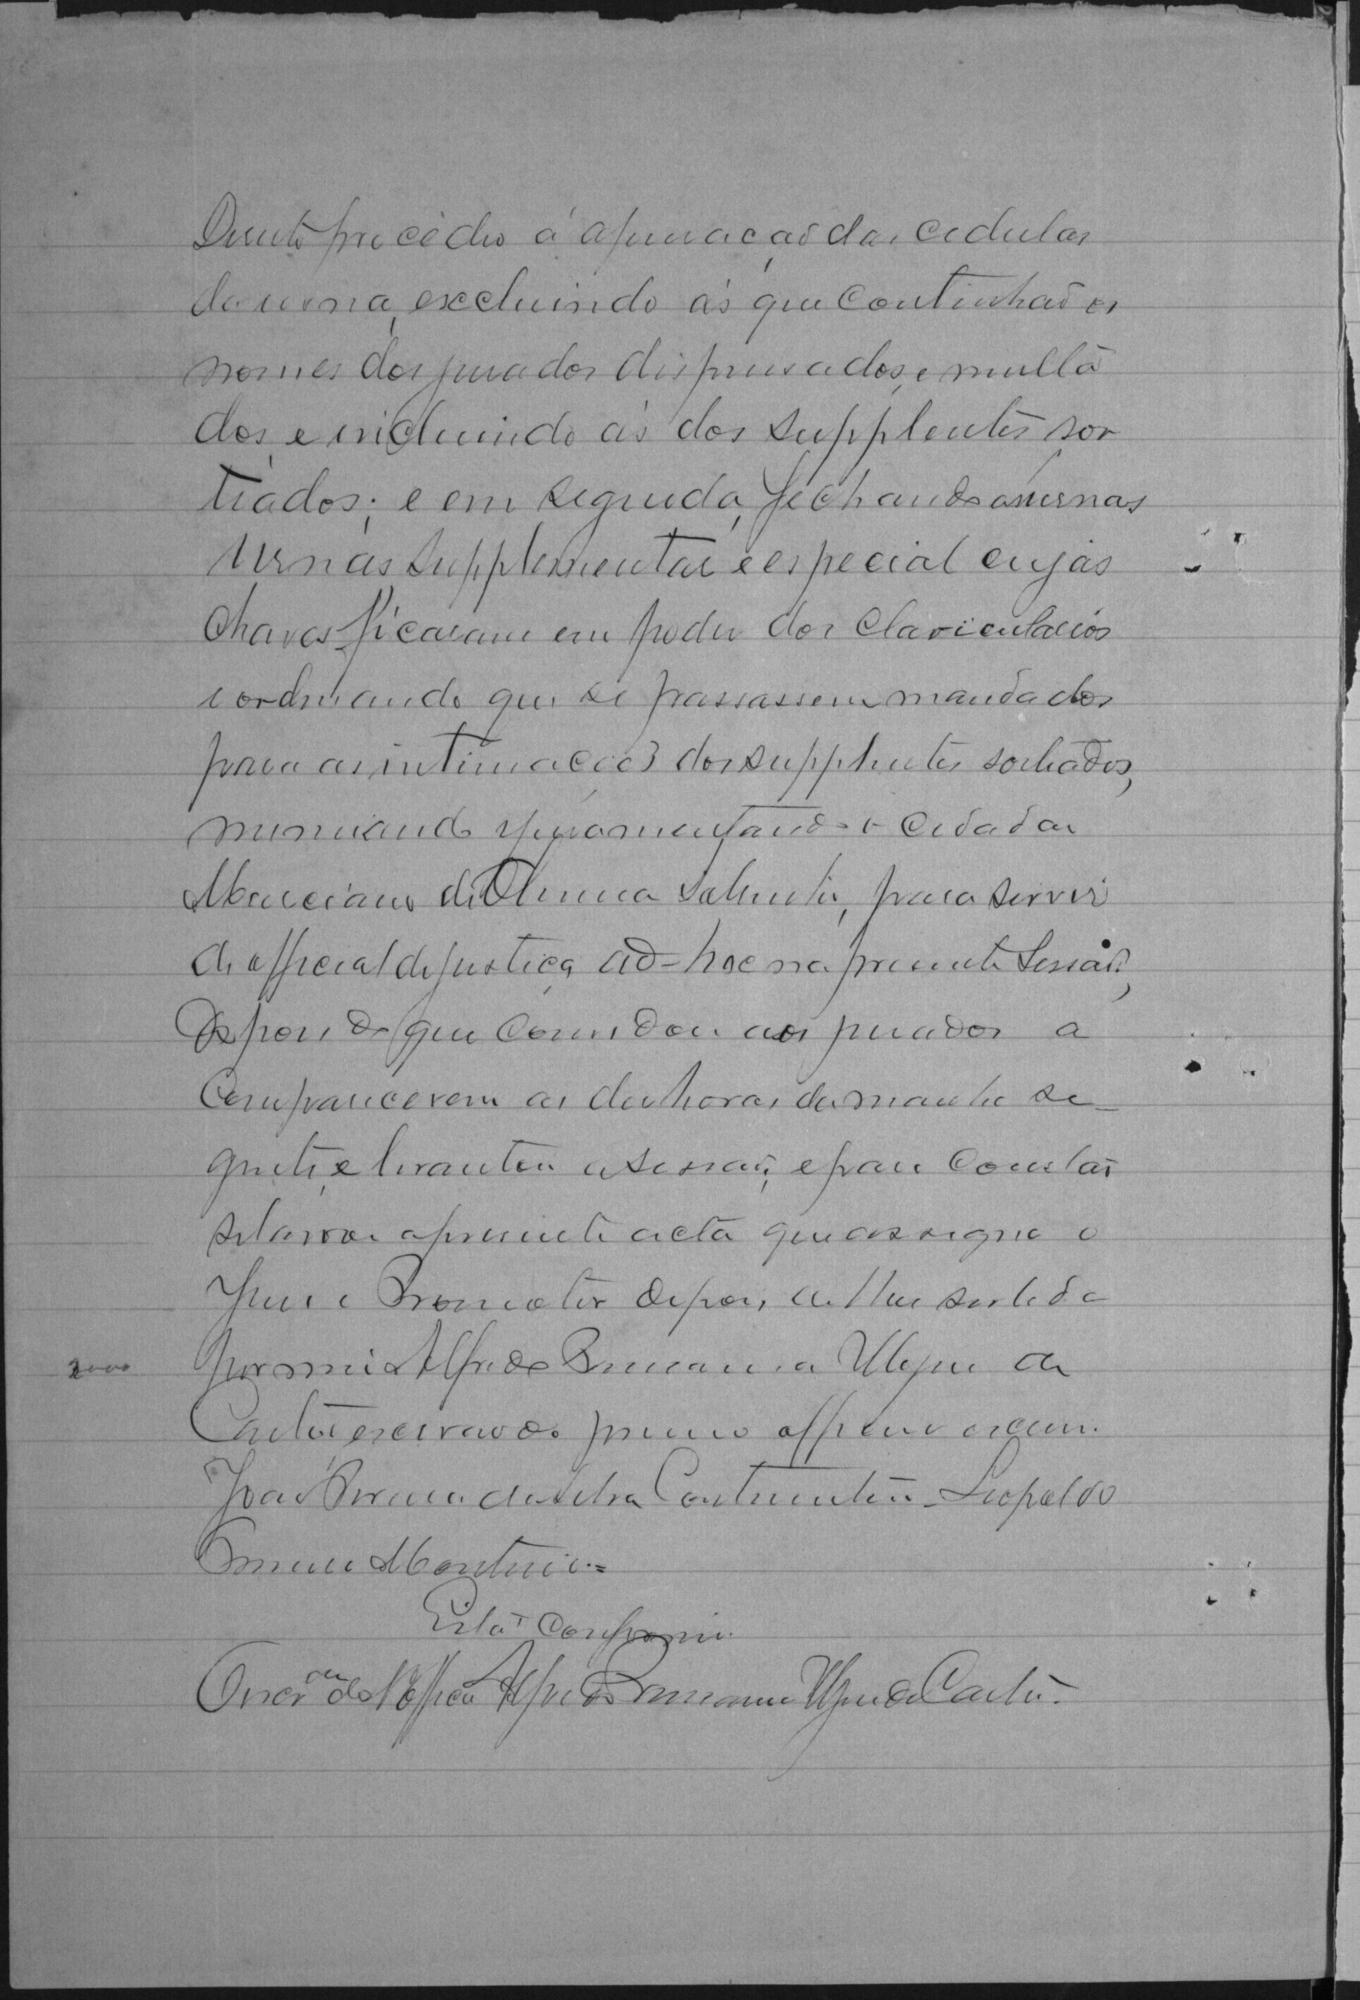 Direito procedeo á apuração das cedulas
da urna, excluindo ás que continhão os
nomes dos jurados dispensados, e multa
dos, e incluindo ás dos supplentes sor
tiados; e em seguida, fechando as urnas
urnas supplementar e especial cujas
chaves ficaram em poder dos clavicularios
e ordenando que se passassem mandados
para as intimações dos supplentes sorteados,
nomeando e juramentando o cidadão
Marciano de Oliveira, para servir
de official de justiça ad-hoc na presente sessão,
depois do que convidou aos jurados a
comparecerem as dez horas da manhã se-
guinte, e levantou a sessão; e para constar
se lavrou a presente acta que assigna o
Juiz e Promotor depois de lhes ser lida
por mim Alfredo de
Castro escrivão do primeiro officio escrevi.
João Pereira da Silva Continentino - Leopoldo
Monteiro =
Está conforme.
O escr.am do 1º officio Alfredo de Castro.